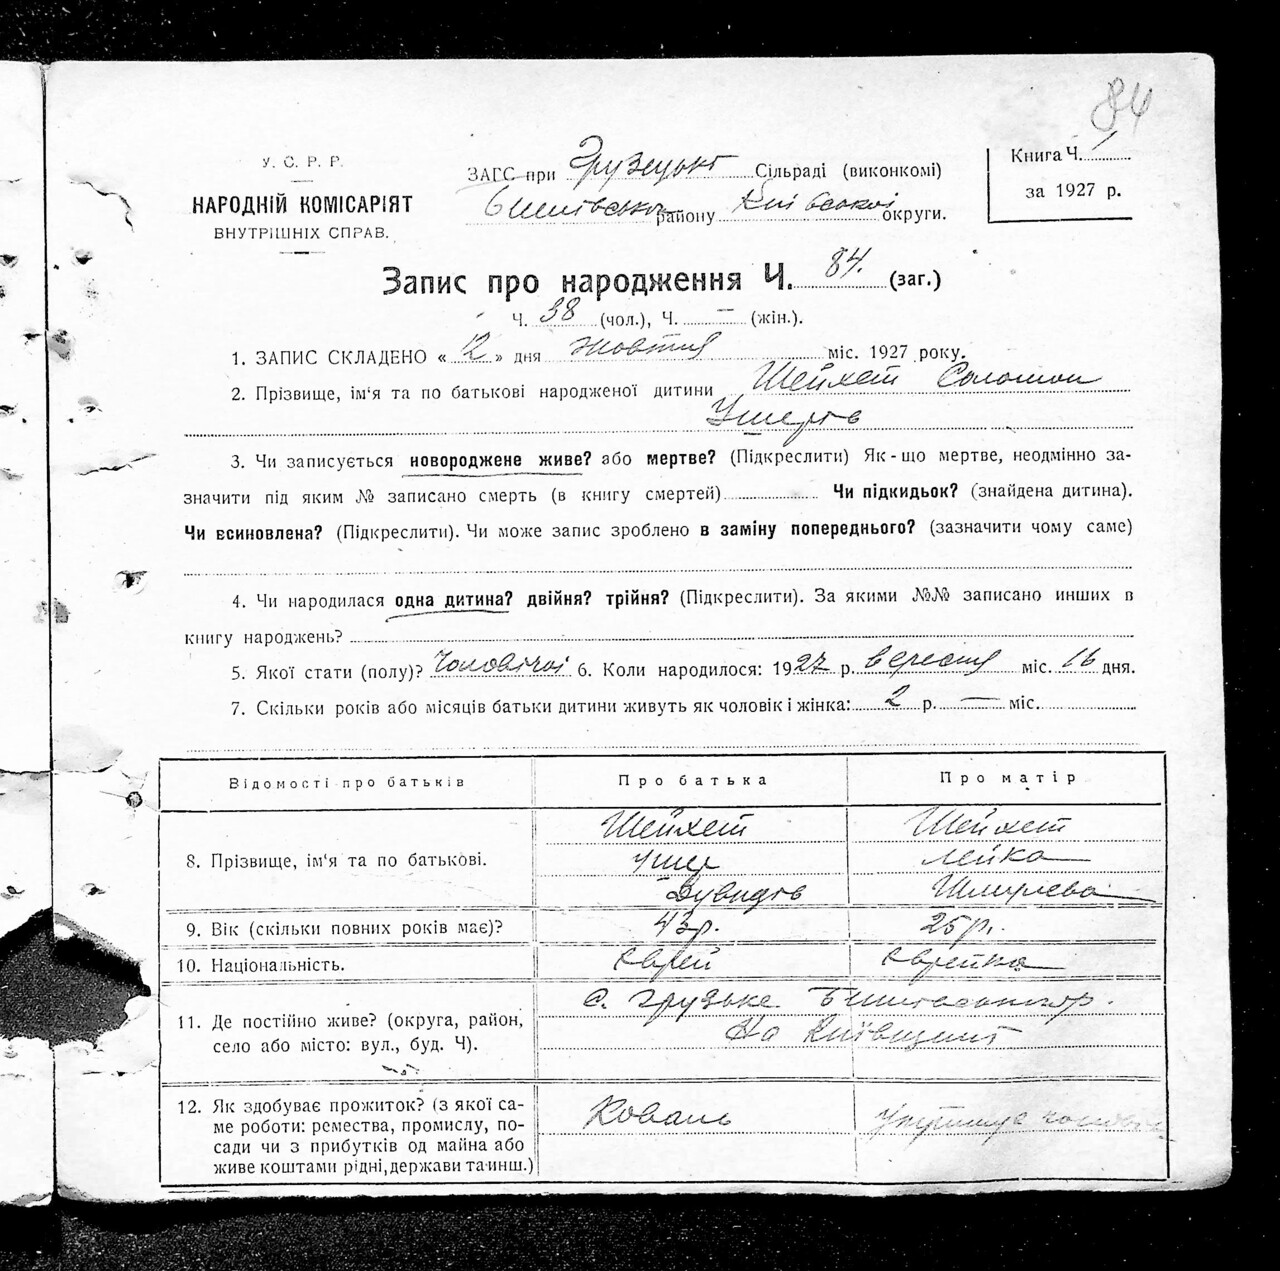 84
У. С. Р. Р.
НАРОДНІЙ КОМІСАРІЯТ
ВНУТРІШНІХ СПРАВ.
ЗАГС при Грузецькі Сільраді (виконкомі)
району Київської округи.
Книга Ч. 1
за 1927 р.
Запис про народження Ч. 84. (заг.)
Ч. 38 (чол.), Ч. — (жін.).
1. ЗАПИС СКЛАДЕНО « 12 » дня жовтня міс. 1927 року.
2. Прізвище, ім'я та по батькові народженої дитини Шейхет Соломон
Ушерів
3. Чи записується новороджене живе? або мертве? (Підкреслити) Як-що мертве, неодмінно за-
значити під яким № записано смерть (в книгу смертей) Чи підкидьок? (знайдена дитина).
Чи всиновлена? (Підкреслити). Чи може запис зроблено в заміну попереднього? (зазначити чому саме)
4. Чи народилася одна дитина? двійня? трійня? (Підкреслити). За якими №№ записано инших в
книгу народжень?
5. Якої стати (полу)? Чоловічої 6. Коли народилося: 1927 р. вересня міс. 16 дня.
7. Скільки років або місяців батьки дитини живуть як чоловік і жінка: 2 р. — міс.
Відомості про батьків Про батька Про матір
8. Прізвище, ім'я та по батькові.
Шейхет Шейхет
Ушер Лейка
Дувидів Шмулева
9. Вік (скільки повних років має)? 43р. 25р.
10. Національність. Єврей Єврейка
11. Де постійно живе? (округа, район,
село або місто: вул., буд. Ч).
с. Грузьке
На Київщині
12. Як здобуває прожиток? (з якої са-
ме роботи: ремества, промислу, по-
сади чи з прибутків од майна або
живе коштами рідні, держави та инш.)
Коваль